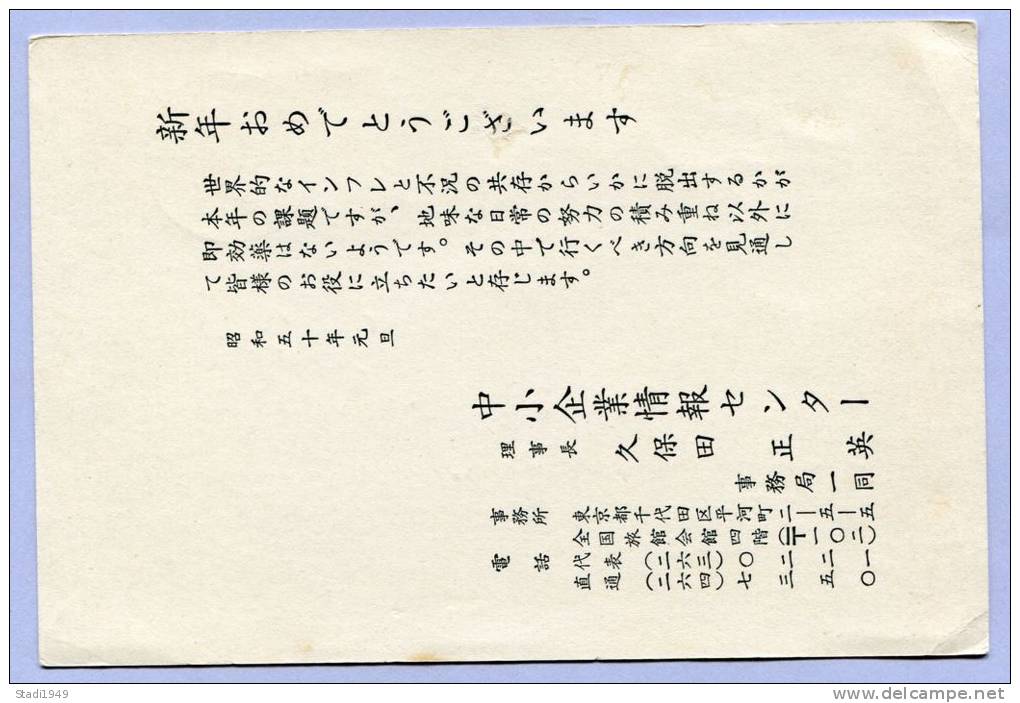 新年おめでとうございます
世界的なインフレと不況の共存からいかに脱出するかが
本年の課題ですが、地味な日常の努力の積み重ね以外に
即効薬はないようです。その中で行くべき方向を見通し
て皆様のお役に立ちたいと存じます。
昭和五十年元旦
中小企業情報センター
理事長 久保田正英
事務局一同
事務所 東京都千代田区平河町二ー五ー五
全国旅館会館四階(〒一〇二)
電話 代表(二六三)〇二二一
直通(二六四)七三五〇
Stadi1949
www.delcampe.net